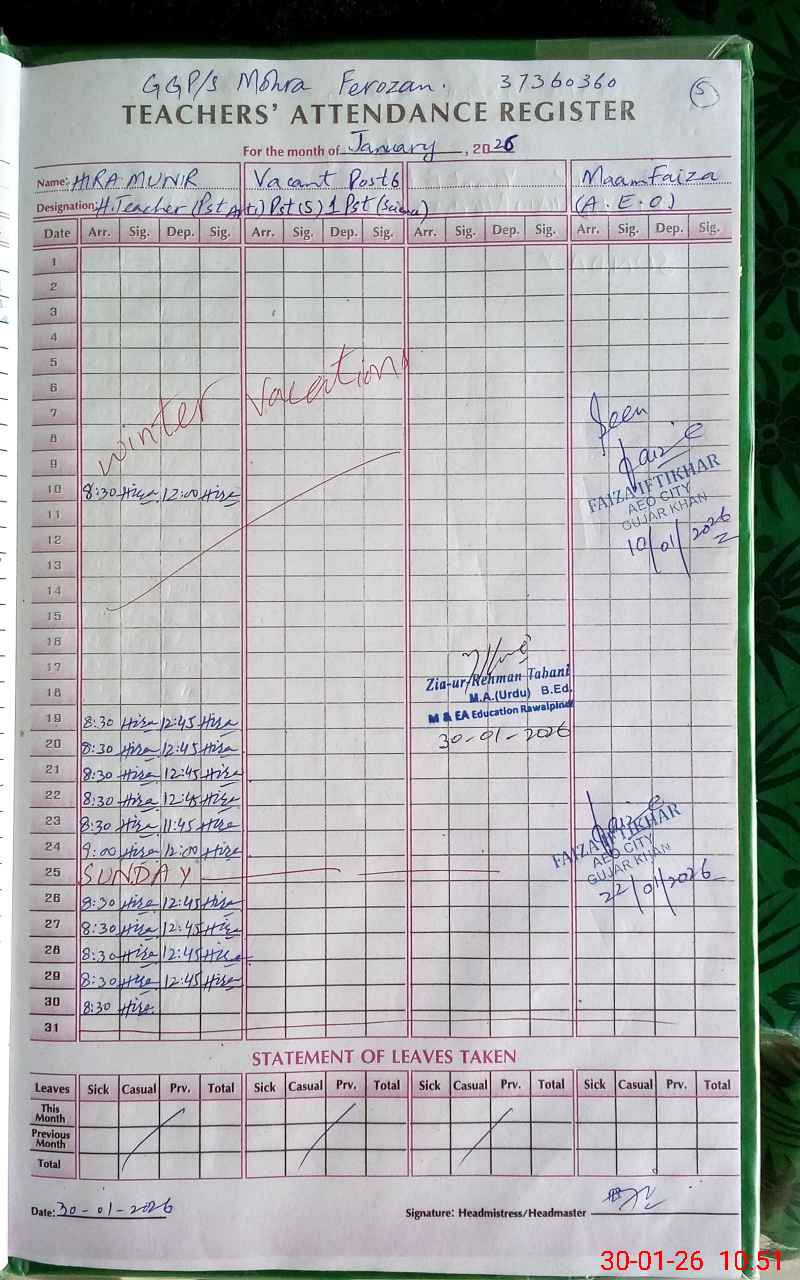 GGP/S Mohra Ferozan. 37360360 (5)
TEACHERS' ATTENDANCE REGISTER
For the month of January, 2026
Name: HIRA MUNIR Vacant Post 6 Maam Faiza
Designation: H.Teacher (Pst Arts) Pst(S) 1 Pst (Science) (A.E.O)
Date Arr. Sig. Dep. Sig. Arr. Sig. Dep. Sig. Arr. Sig. Dep. Sig. Arr. Sig. Dep. Sig.
1
2
3
4
5
6
Winter Vacations
7
Seen
8
9
Faiza
FAIZA IFTIKHAR
10 8:30 Hira 12:00 Hira
AEO CITY
GUJAR KHAN
11
12
10/01/2026
13
14
15
16
17
Zia-ur-Rehman Tabani
18
M.A.(Urdu) B.Ed.
M & EA Education Rawalpindi
19 8:30 Hira 12:45 Hira
30-01-2026
20 8:30 Hira 12:45 Hira
21 8:30 Hira 12:45 Hira
22 8:30 Hira 12:45 Hira
23 8:30 Hira 11:45 Hira
Faiza
FAIZA IFTIKHAR
24 9:00 Hira 12:00 Hira
AEO CITY
GUJAR KHAN
25 SUNDAY
22/01/2026
26 8:30 Hira 12:45 Hira
27 8:30 Hira 12:45 Hira
28 8:30 Hira 12:45 Hira
29 8:30 Hira 12:45 Hira
30 8:30 Hira
31
STATEMENT OF LEAVES TAKEN
Leaves Sick Casual Prv. Total Sick Casual Prv. Total Sick Casual Prv. Total Sick Casual Prv. Total
This Month
Previous Month
Total
Date: 30-01-2026 Signature: Headmistress/Headmaster
30-01-26 10:51